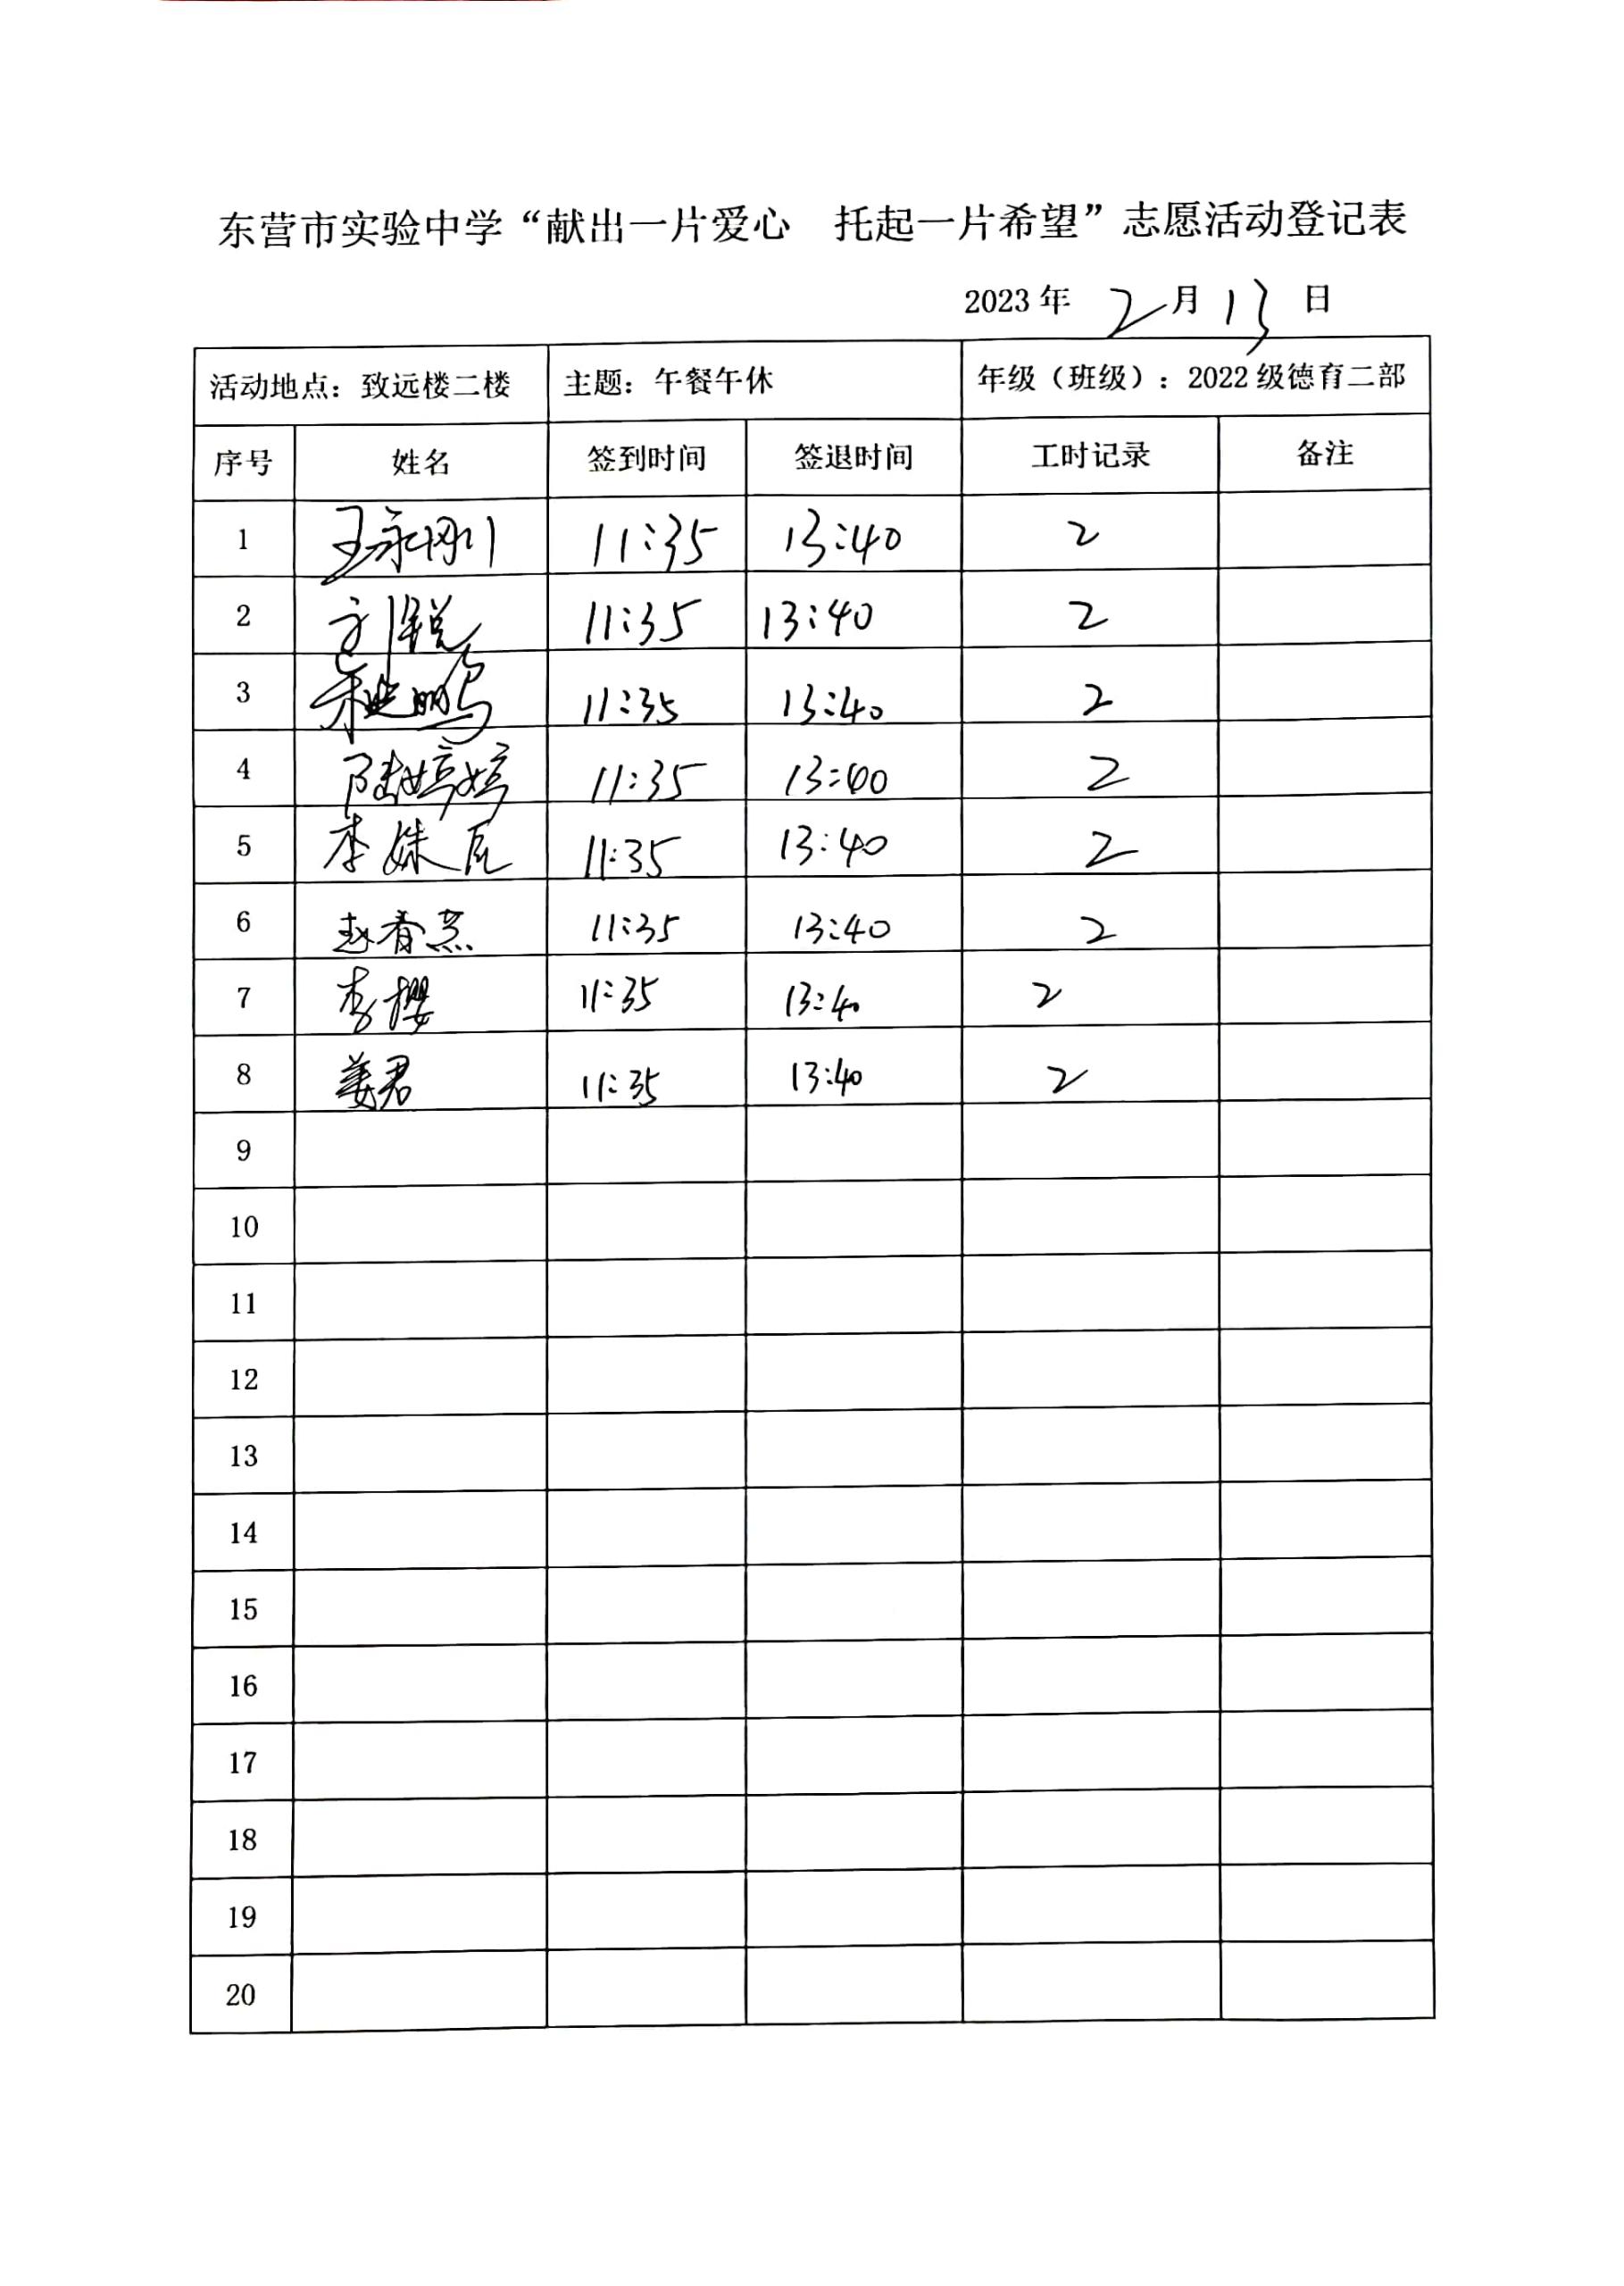 东营市实验中学“献出一片爱心 托起一片希望”志愿活动登记表
2023 年 2 月 13 日
活动地点：致远楼二楼 主题：午餐午休 年级（班级）：2022 级德育二部
序号 姓名 签到时间 签退时间 工时记录 备注
1 王永刚 11:35 13:40 2
2 刘锐 11:35 13:40 2
3 11:35 13:40 2
4 陆婷婷 11:35 13:40 2
5 李姝 11:35 13:40 2
6 赵春燕 11:35 13:40 2
7 李樱 11:35 13:40 2
8 姜君 11:35 13:40 2
9
10
11
12
13
14
15
16
17
18
19
20